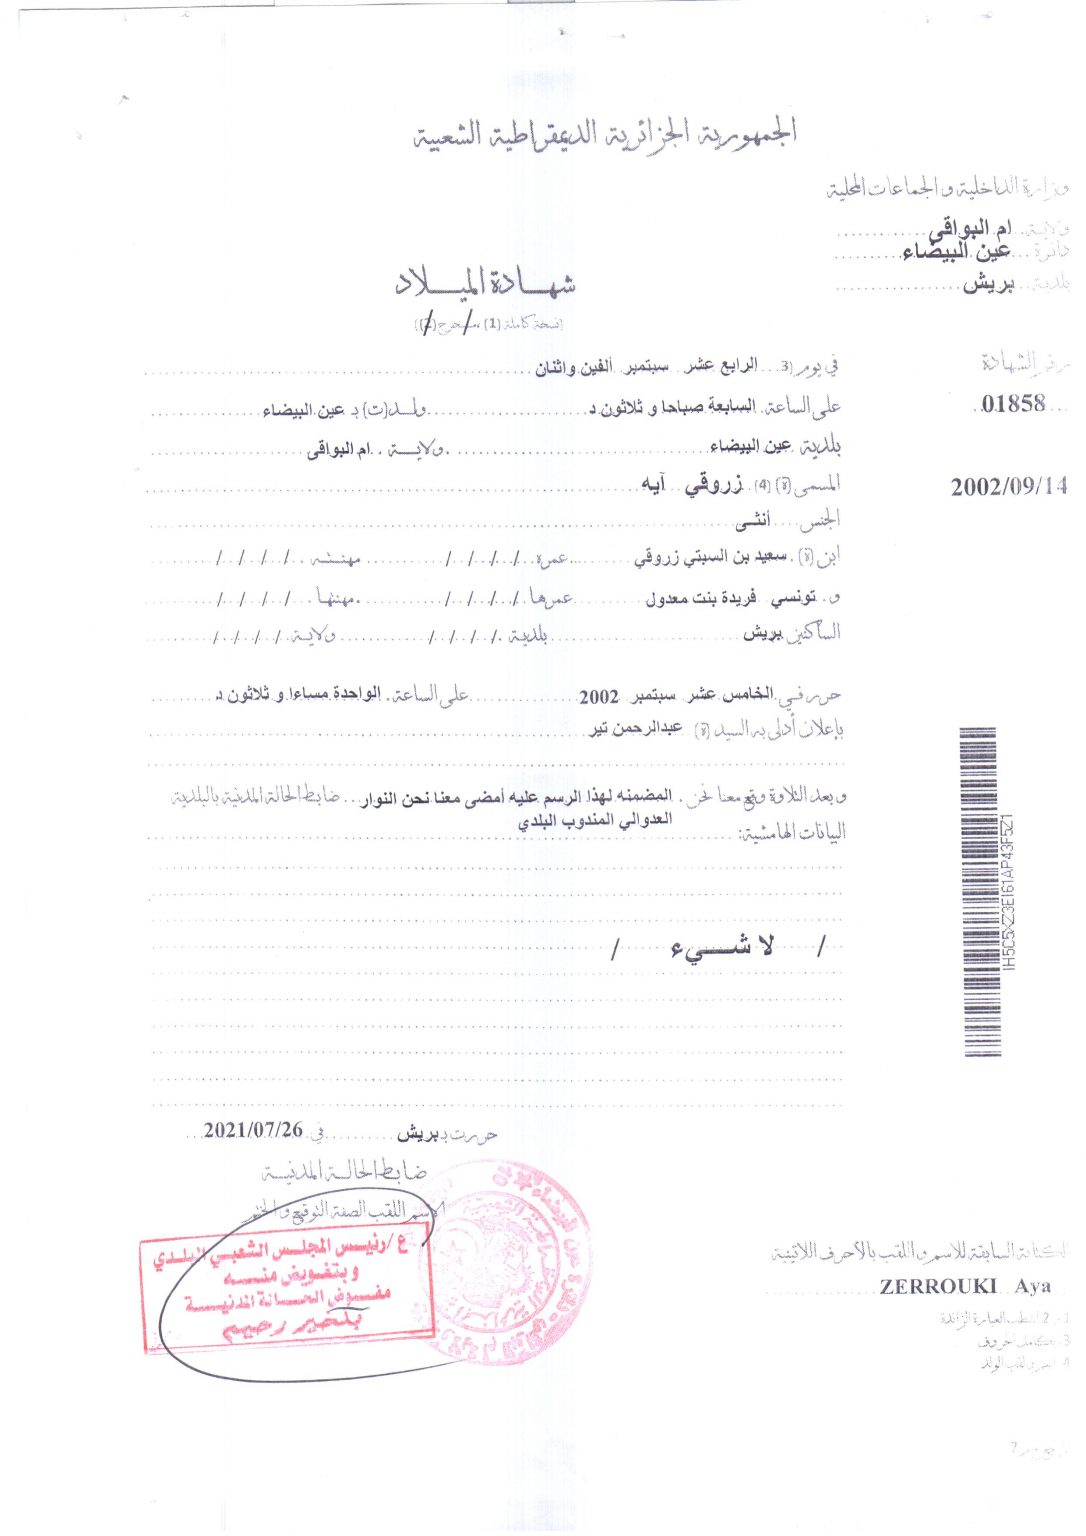 الجمهورية الجزائرية الديمقراطية الشعبية
وزارة الداخلية والجماعات المحلية
ولاية ام البواقي
دائرة عين البيضاء
بلدية بريش
شهادة الميلاد
(نسخة كاملة (1) ،مستخرج (2))
رقم الشهادة
01858
2002/09/14
في يوم (3 الرابع عشر سبتمبر ألفين واثنان
على الساعة. السابعة صباحا و ثلاثون د ولد(ت) بـ عين البيضاء
بلدية عين البيضاء ولاية ام البواقي
المسمى (ة) (4). زروقي آيه
الجنس أنثى
ابن (ة) سعيد بن السبتي زروقي عمره / / / / مهنته / / / /
و. تونسي فريدة بنت معدول عمرها / / / / مهنتها / / / /
الساكنين بريش بلدية / / / / ولاية / / / /
حرر في الخامس عشر سبتمبر 2002 على الساعة. الواحدة مساءا و ثلاثون د
بإعلان أدلى به السيد (ة) عبدالرحمن تير
و بعد التلاوة وقع معنا نحن. المضمنه لهذا الرسم عليه أمضى معنا نحن النوار ضابط الحالة المدنية بالبلدية
العدوالي المندوب البلدي
البيانات الهامشية:
/ لا شيء /
1H5C5XZ3E161AP43F5Z1
حررت بـ بريش في 2021/07/26
ضابط الحالة المدنية
الاسم اللقب الصفة التوقيع و الختم
ع/رئيس المجلس الشعبي البلدي
وبتفويض منه
مفوض الحالة المدنية
بلخير رحيم
الكتابة السابقة للاسم و اللقب بالأحرف اللاتينية
ZERROUKI Aya